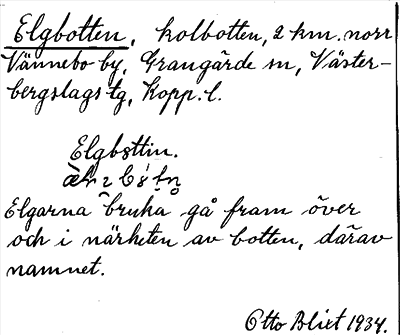 Elgbotten, kolbotten, 2 km. norr
Vännebo by, Grangärde sn, Väster-
bergslags tg, Kopp. l.
Elgbottin.
Elgarna bruka gå fram över
och i närheten av botten, därav
namnet.
Otto Blixt 1934.